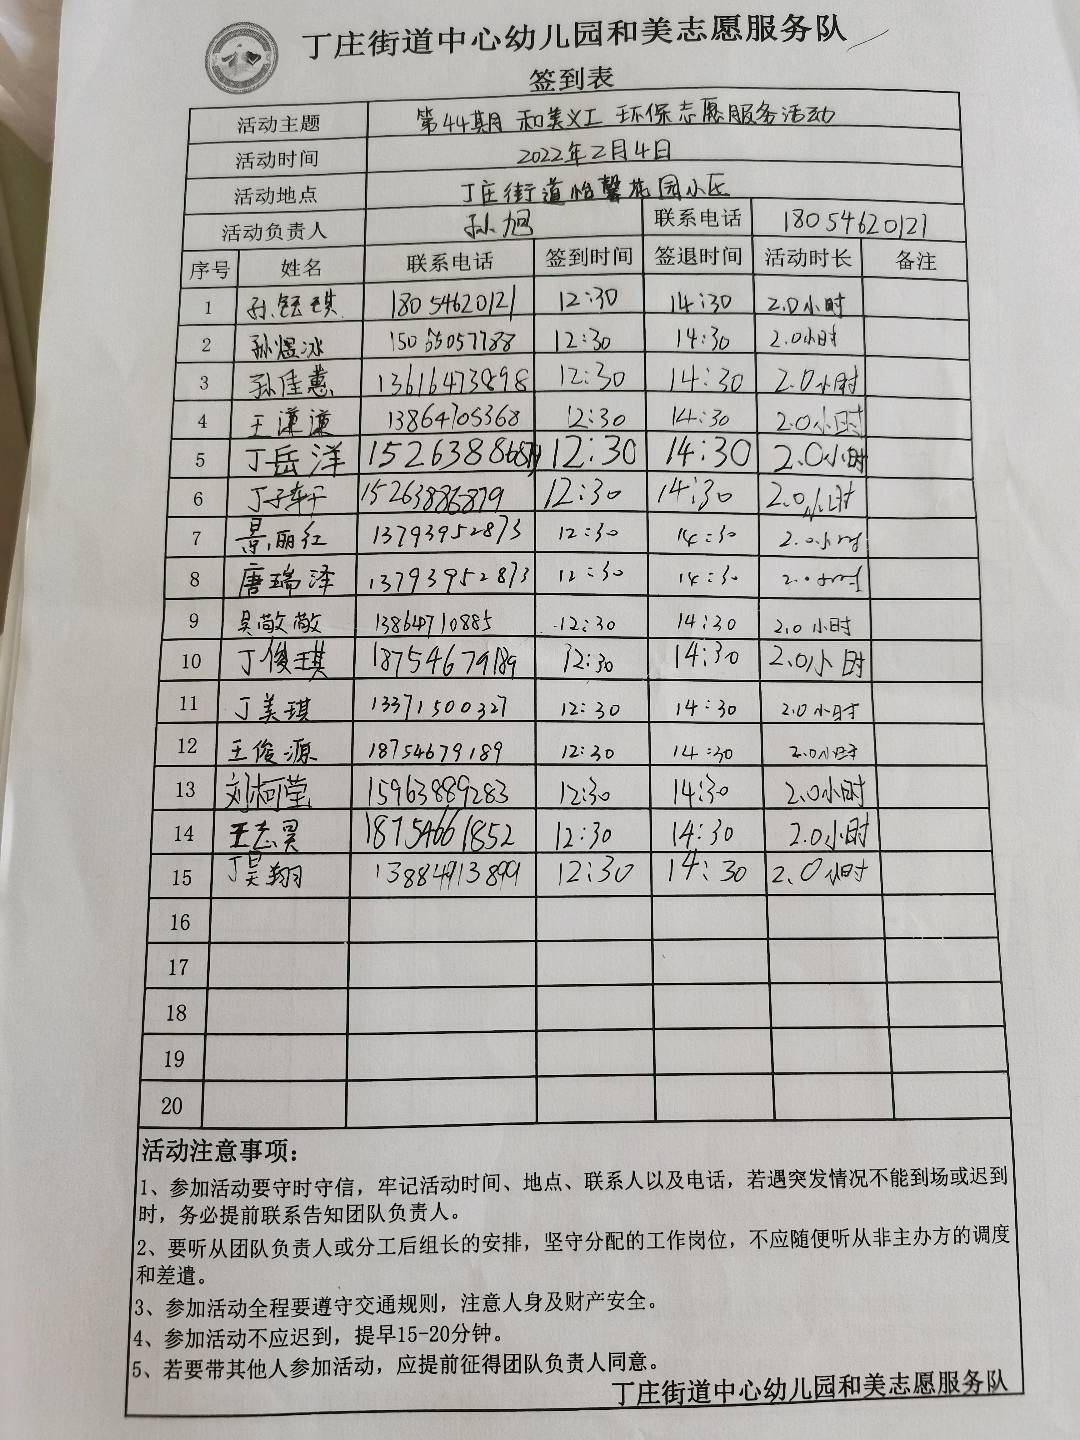 丁庄街道中心幼儿园和美志愿服务队
签到表
活动主题 第44期 和美义工 环保志愿服务活动
活动时间 2022年2月4日
活动地点 丁庄街道怡馨花园小区
活动负责人 孙旭 联系电话 18054620121
序号 姓名 联系电话 签到时间 签退时间 活动时长 备注
1 孙钰琪 18054620121 12:30 14:30 2.0小时
2 孙煜冰 12:30 14:30 2.0小时
3 孙佳蕙 13616473898 12:30 14:30 2.0小时
4 王谦谦 13864705368 12:30 14:30 2.0小时
5 丁岳洋 12:30 14:30 2.0小时
6 丁子轩 15263886879 12:30 14:30 2.0小时
7 景丽红 13793952873 12:30 14:30 2.0小时
8 唐瑞泽 13793952873 12:30 14:30 2.0小时
9 吴敬敬 13864710885 12:30 14:30 2.0小时
10 丁俊琪 18754679189 12:30 14:30 2.0小时
11 丁美琪 13371500327 12:30 14:30 2.0小时
12 王俊源 18754679189 12:30 14:30 2.0小时
13 刘柯莹 15963889283 12:30 14:30 2.0小时
14 王志昊 18754661852 12:30 14:30 2.0小时
15 丁昊翔 13884913899 12:30 14:30 2.0小时
16
17
18
19
20
活动注意事项：
1、参加活动要守时守信，牢记活动时间、地点、联系人以及电话，若遇突发情况不能到场或迟到
时，务必提前联系告知团队负责人。
2、要听从团队负责人或分工后组长的安排，坚守分配的工作岗位，不应随便听从非主办方的调度
和差遣。
3、参加活动全程要遵守交通规则，注意人身及财产安全。
4、参加活动不应迟到，提早15-20分钟。
5、若要带其他人参加活动，应提前征得团队负责人同意。
丁庄街道中心幼儿园和美志愿服务队